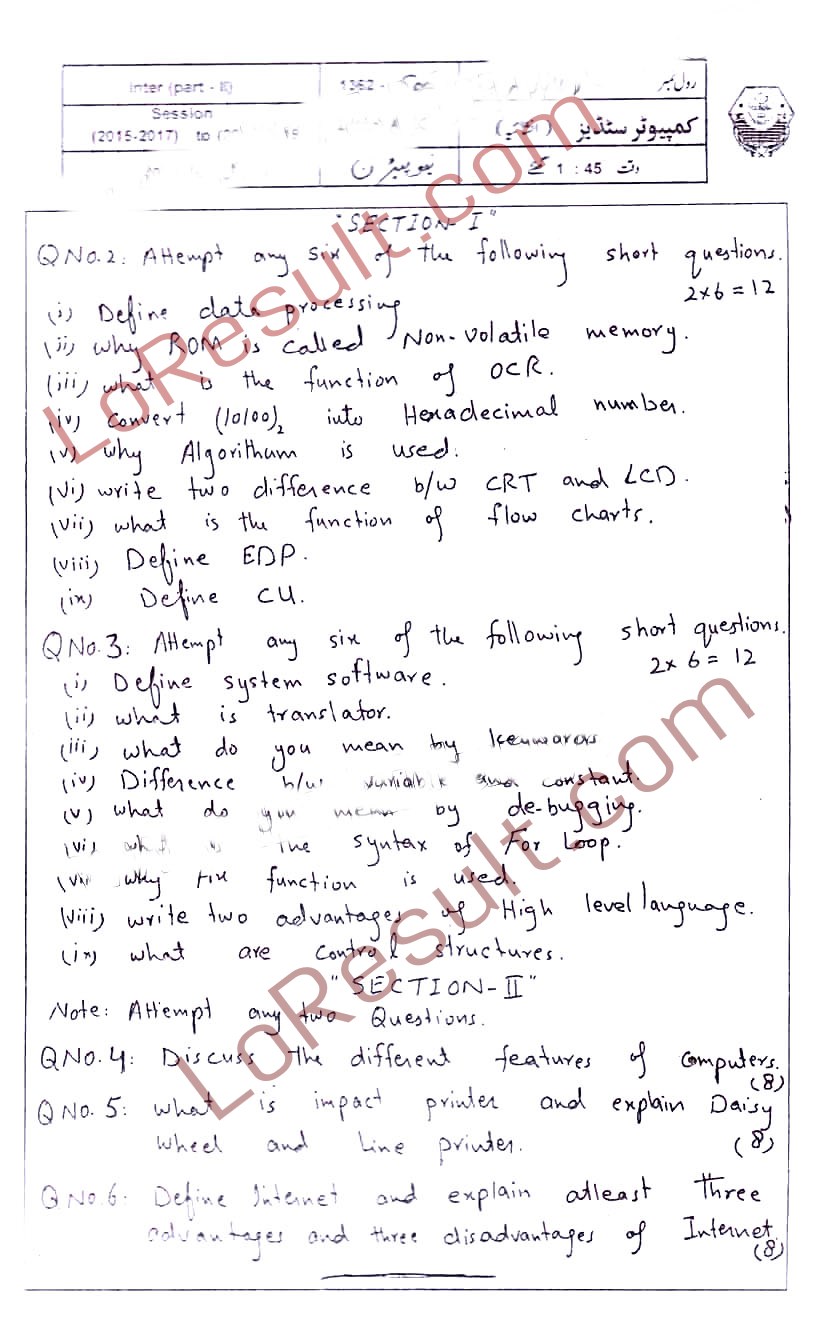 Inter (part - II)
1362 -
رول نمبر
Session
(2015-2017) to
کمپیوٹر سٹڈیز
نیو پیٹرن
وقت 1 : 45 گھنٹے
"SECTION-I"
Q No.2: Attempt any six of the following short questions.
2x6 = 12
(i) Define data processing
(ii) why ROM is called Non-volatile memory.
(iii) what is the function of OCR.
(iv) convert (10100)₂ into Hexadecimal number.
(v) why Algorithum is used.
(vi) write two difference b/w CRT and LCD.
(vii) what is the function of flow charts.
(viii) Define EDP.
(ix) Define CU.
Q No.3: Attempt any six of the following short questions.
2x 6 = 12
(i) Define system software.
(ii) what is translator.
(iii) what do you mean by
(iv) Difference b/w variable and constant.
(v) what do you mean by de-bugging.
(vi) the syntax of For Loop.
why FIX function is used.
(viii) write two advantages of High level language.
(ix) what are control structures.
"SECTION-II"
Note: Attempt any two Questions.
Q No.4: Discuss the different features of computers.
(8)
Q No.5: what is impact printer and explain Daisy
wheel and Line printer. (8)
Q No.6. Define Internet and explain atleast three
advantages and three disadvantages of Internet.
(8)
LoResult.com
LoResult.com